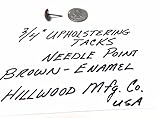 3/4" UPHOLSTERING
TACKS
NEEDLE POINT
BROWN - ENAMEL
HILLWOOD Mfg. Co.
USA